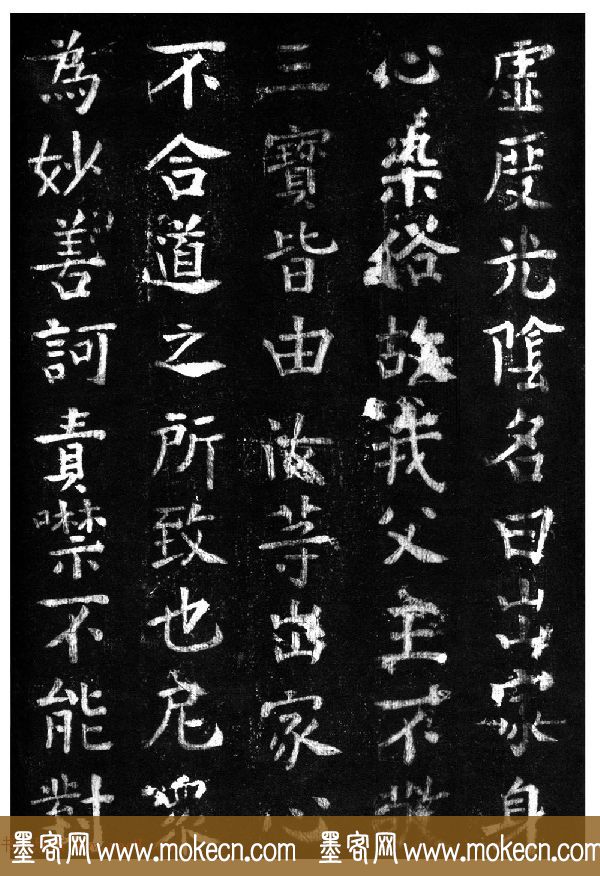 虛度光陰名曰出家身
心染俗故我父主不敬
三寶皆由汝等出家心
不合道之所致也尼眾
為妙善訶責噤不能對
墨客网 www.mokecn.com 墨客网 www.mokecn.com